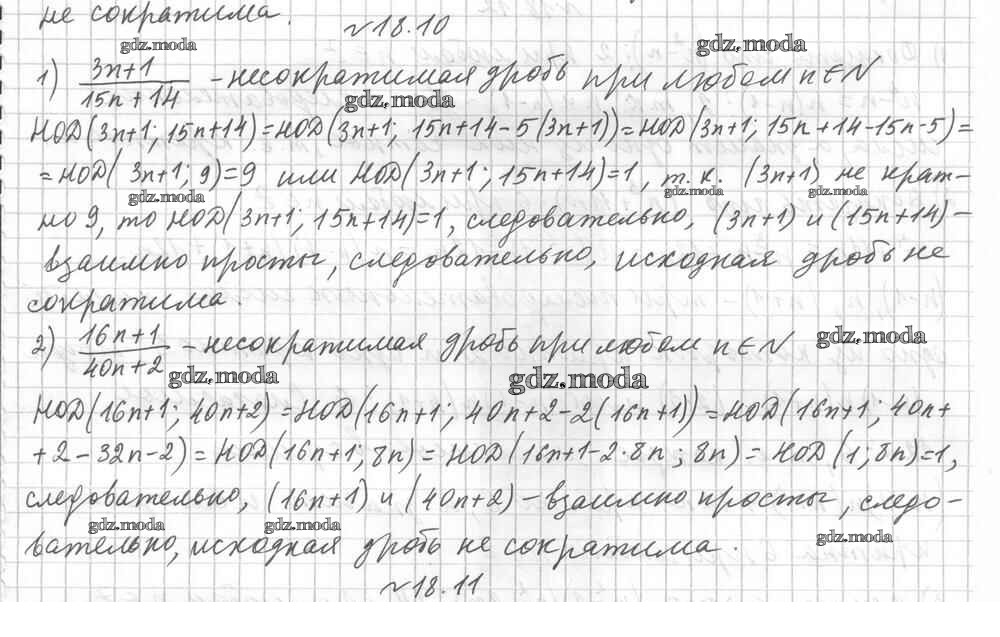 не сократима.
№18.10
gdz.moda
gdz.moda
1) (3n+1)/(15n+14) - несократимая дробь при любом n∈N
gdz.moda
НОД(3n+1; 15n+14)=НОД(3n+1; 15n+14-5(3n+1))=НОД(3n+1; 15n+14-15n-5)=
=НОД(3n+1; 9)=9 или НОД(3n+1; 15n+14)=1, т.к. (3n+1) не крат-
gdz.moda
gdz.moda
gdz.moda
но 9, то НОД(3n+1; 15n+14)=1, следовательно, (3n+1) и (15n+14) -
взаимно просты, следовательно, исходная дробь не
сократима.
2) (16n+1)/(40n+2) - несократимая дробь при любом n∈N
gdz.moda
gdz.moda
gdz.moda
НОД(16n+1; 40n+2)=НОД(16n+1; 40n+2-2(16n+1))=НОД(16n+1; 40n+
+2-32n-2)=НОД(16n+1; 8n)=НОД(16n+1-2·8n; 8n)=НОД(1; 8n)=1,
следовательно, (16n+1) и (40n+2) - взаимно просты, следо-
gdz.moda
gdz.moda
gdz.moda
вательно, исходная дробь не сократима.
№18.11